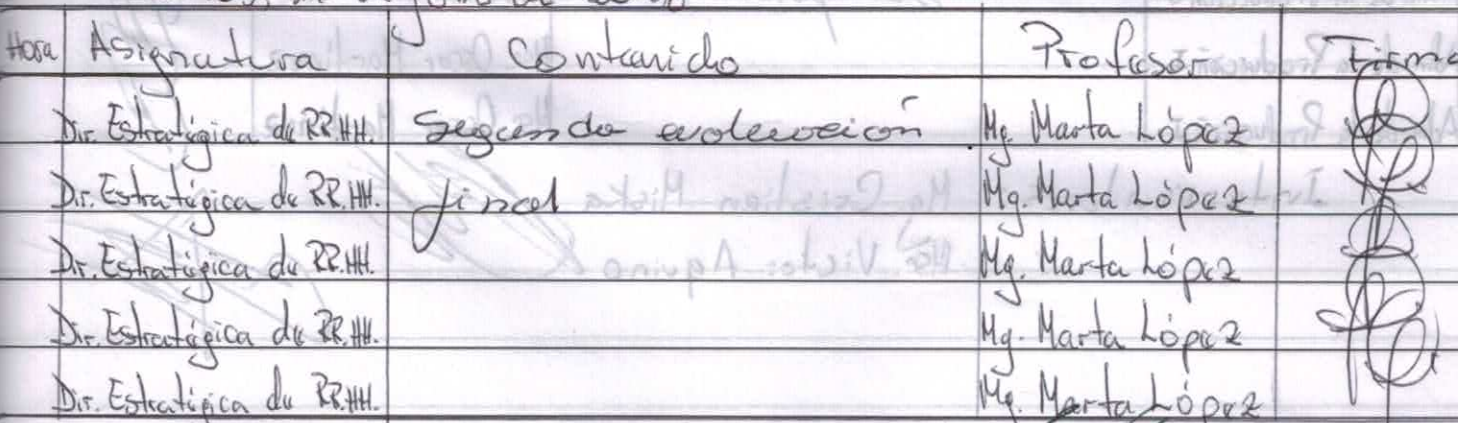 Hora Asignatura Contenido Profesor Firma
Dir. Estratégica de RR.HH. Segunda evaluación Mg. Marta López
Dir. Estratégica de RR.HH. final Mg. Marta López
Dir. Estratégica de RR.HH. Mg. Marta López
Dir. Estratégica de RR.HH. Mg. Marta López
Dir. Estratégica de RR.HH. Mg. Marta López